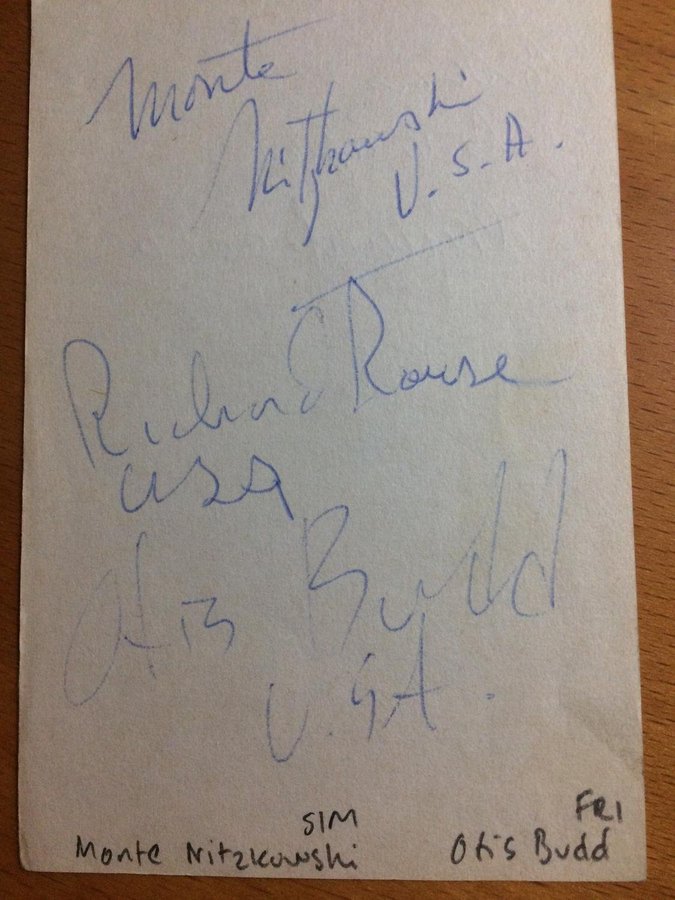 Monte
Nitzkowski
U.S.A.
Richard Rouse
USA
Otis Budd
U.S.A.
SIM
FRI
Monte Nitzkowski
Otis Budd